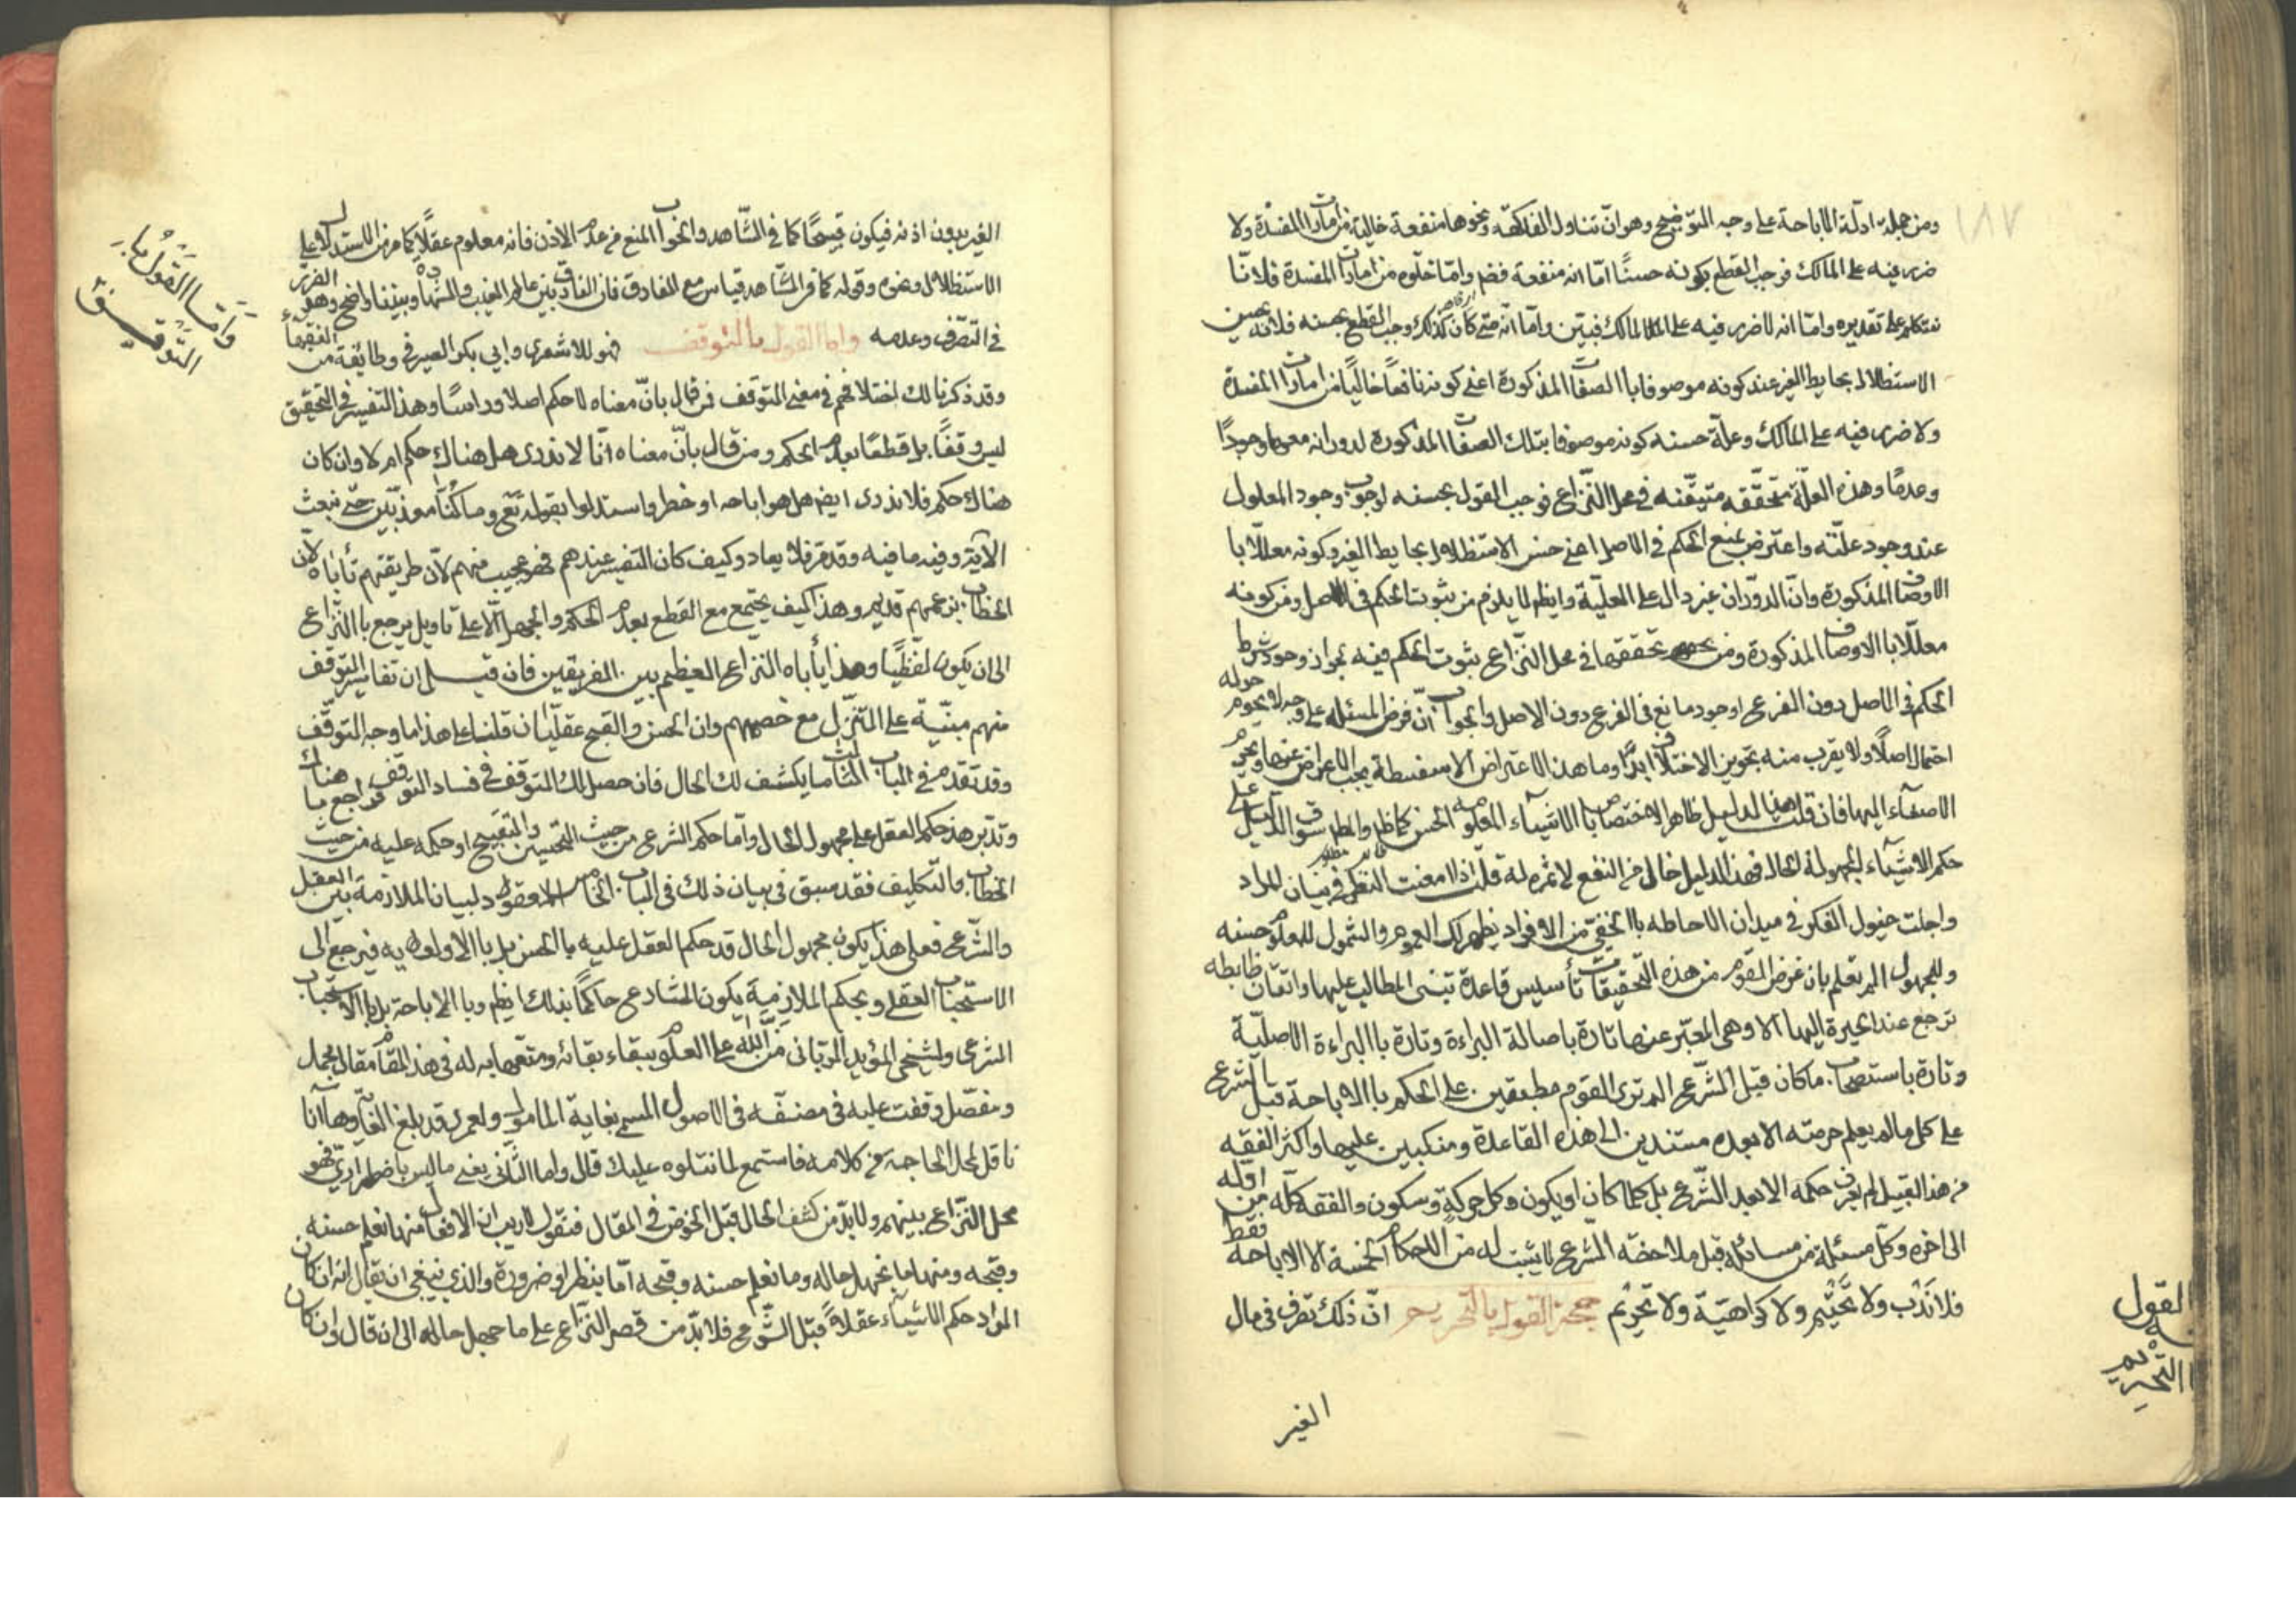 ١٨٧
ومن جملة ادلّة الاباحة على وجه التوضيح وهو انّ تناول الفاكهة ونحوها منفعة خالية من امارات المفسدة ولا
ضرر فيه على المالك فوجب القطع بكونه حسنًا امّا انه منفعة فضم وامّا خلّوه من امارات المفسدة فلانّا
نتكلم على تقديره وامّا انه لا ضرر فيه على المالك فبيّن وامّا انّه متى كان كذلك وجب القطع بحسنه فلانه يحسن
الاستظلال بحايط الغير عند كونه موصوفا باالصفات المذكورة اعني كونه نافعاً خاليًا من امارات المفسدة
ولا ضرر فيه على المالك وعلّة حسنه كونه موصوفا بتلك الصفات المذكورة لدورانه معها وجودًا
وعدمًا وهذه العلّة متحقّقه متيقّنه في محل النّزاع فوجب القول بحسنه لوجوب وجود المعلول
عند وجود علّته واعترض بمنع الحكم في الاصل اعني حسن الاستظلال بحايط الغير وكونه معلّلا با
الاوصاف المذكورة وانّ الدّوران غير دال على العليّة وايضم لا يلزم من ثبوت الحكم في الاصل ومن كونه
معلّلا باالاوصاف المذكورة ومن تحققها في محل النّزاع ثبوت الحكم فيه لجواز وجود شرط
الحكم في الاصل دون الفرع او وجود مانع في الفرع دون الاصل والجواب انّ فرض المسئله على وجه لا يحوم حوله
احتمال اصلًا ولا يقرب منه تجويز الاختلاف ابدًا وما هذا الاعتراض الا سفسطة يجب الاعراض عنها ويحرم
الاصغاء اليها فان قلت هذا الدليل ظاهر الاختصاص باالاشياء المعلومه الحسن كما ظهر والمطلوب سوق الدّليل على
حكم الاشياء المجهولة الحال فهذا الدليل خال من النفع لا ثمره له قلت اذا امعنت النظر في بيان المراد
واجلت خيول الفكر في ميدان الاحاطه باالخفي من الافراد يظهر لك العموم والشمول للمعلوم حسنه
وللمجهول الم تعلم بان غرض القوم من هذه التحقيقات تأسيس قاعدة تبنى المطالب عليها واتقان ظابطه
ترجع عند الحيرة اليها الا وهي المعبّر عنها تارة باصالة البراءة وتارة باالبراءة الاصليّة
وتارة باستصحاب ما كان قبل الشّرع الم ترى القوم مطبقين على الحكم باالاباحة قبل الشرع
على كل ما لم يعلم حرمته الا بعده مستندين الى هذه القاعدة ومنكبين عليها واكثر الفقه
من هذا القبيل لم يعرف حكمه الا بعد الشّرع بل كلما كان او يكون وكل حركةٍ وسكون والفقه كلّه من اوّله
الى اخره وكلّ مسئلة من مسائله قبل ملاحضة الشرع لا يثبت له من الاحكام الخمسة الا الاباحة فقط
فلا نَدْب ولا تحّتيم ولا كراهيّة ولا تحريم حجة القول بالتحريم انّ ذلك تصرف في مال
القول
التحريم
الغير
الغير بدون اذنه فيكون قبيحًا كما في الشّاهد والجواب المنع من عدم الاذن فانه معلوم عقلًا كما مر من الاستدلال على
الاستظلال ونحوه وقوله كما في الشّاهد قياس مع الفارق فان الفارق بين عالم الغيب والشهادة وبيننا واضح وهو الضرر
في التصّرف وعدمه واما القول بالتوقف فهو للاشعري وابي بكر الصيرفي وطائفة من الفقهاء
وقد ذكرنا لك اختلافهم في معنى التوقف فمن قال بانّ معناه لا حكم اصلا وراسًا وهذا التفسير في التحقيق
ليس وقفًا بل قطعًا بعدم الحكم ومن قال بانّ معناه انّا لا ندري هل هناك حكم ام لا وان كان
هناك حكم فلا ندري ايضم هل هو اباحه او خطر واستدلوا بقوله تع وما كنّا معذّبين حتى نبعث
الآية وفيه ما فيه وقد مرّ فلا يعاد وكيف كان التفسير عندهم فهو عجيب منهم لانّ طريقتهم تأباه لان
الخطاب بزعمهم قديم وهذا كيف يجتمع مع القطع بعدم الحكم والجهل الّا على تاويل يرجع باالنّزاع
الى ان يكون لفظيًا وهذا يأباه النزاع العظيم بين الفريقين فان قيل ان تفاسير التوقف
منهم مبنيّة على التنزّل مع خصمهم وان الحسن والقبح عقليّان قلنا على هذا ما وجه التوقّف
وقد تقدم في الباب الثالث ما يكشف لك الحال فان حصل لك التوقف في فساد التوقف فراجع ما هناك
وتدّبر هذ حكم العقل على مجهول الحال وامّا حكم الشرع من حيث التحسين والتقبيح او حكمه عليه من حيث
الخطاب والتكليف فقد سبق في بيان ذلك في الباب الخامس المعقود لبيان الملازمة بين العقل
والشّرع فعلى هذا يكون مجهول الحال قد حكم العقل عليه باالحسن بل باالاولويه فيرجع الى
الاستحباب العقلي وبحكم الملازمة يكون الشارع حاكمًا بذلك ايضم وباالاباحة بل باالاستحباب
الشرعي ولشيخي المؤيد الربّاني منّ الله على العلوم ببقاء بقائه ومتّعها به له في هذا المقام مقال مجمل
ومفصّل وقفت عليه في مصنفّه في الاصول المسمى بغاية المامول ولعمري قد بلغ الغاية وها انا
ناقل لمحل الحاجة من كلامه فاستمع لما نتلوه عليك قال واما الثّاني يعني ما ليس باضطراريّ فهو
محل النّزاع بينهم ولا بدّ من كشف الحال قبل الخوض في المقال فنقول لا ريب ان الافعال منها نعلم حسنه
وقبحه ومنها ما نجهل حاله وما نعلم حسنه وقبحه امّا بنظر او ضرورة والذي ينبغي ان يقال انه ان كان
المراد حكم الاشياء عقلاً قبل الشّرع فلا بدّ من قصر النّزاع على ما جهل حاله الى ان قال وان كان
وَامّا القَوْلُ بِا
التّوقيف